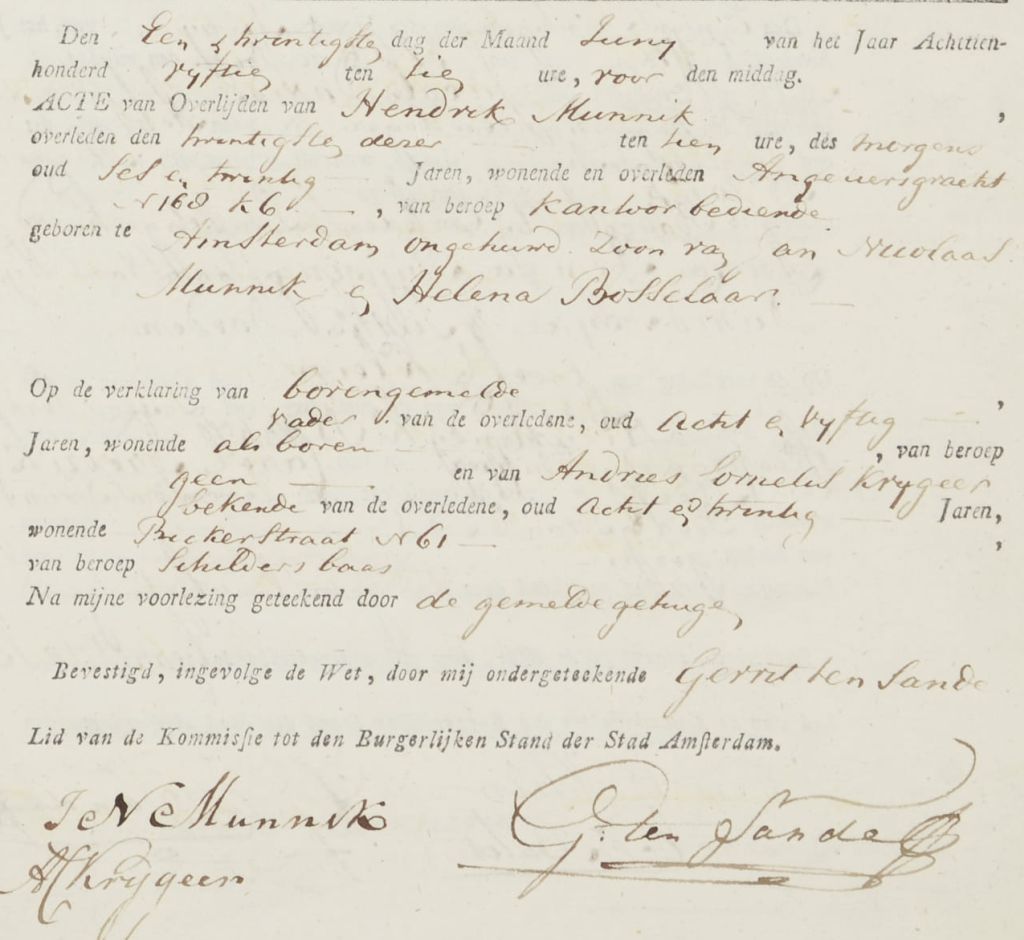 Den Een & twintigste dag der Maand Juny van het Jaar Achttien-
honderd vyftig ten tien ure, voor den middag.
ACTE van Overlijden van Hendrik Munnik ,
overleden den twintigste dezer ten tien ure, des morgens
oud Ses en twintig Jaren, wonende en overleden Angeliersgracht
N 168 K 6. , van beroep kantoor bediende
geboren te Amsterdam ongehuwd. Zoon van Jan Nicolaas
Munnik en Helena Bosselaar.
Op de verklaring van bovengemelde ,
vader van de overledene, oud Acht en vyftig
Jaren, wonende als boven , van beroep
geen en van Andries Cornelis Krygeer
bekende van de overledene, oud Acht en twintig Jaren,
wonende Bickerstraat N 61 ,
van beroep Schildersbaas
Na mijne voorlezing geteekend door de gemelde getuigen
Bevestigd, ingevolge de Wet, door mij ondergeteekende Gerrit ten Sande
Lid van de Kommissie tot den Burgerlijken Stand der Stad Amsterdam.
Munnik G: ten Sande
AC Krijgeer